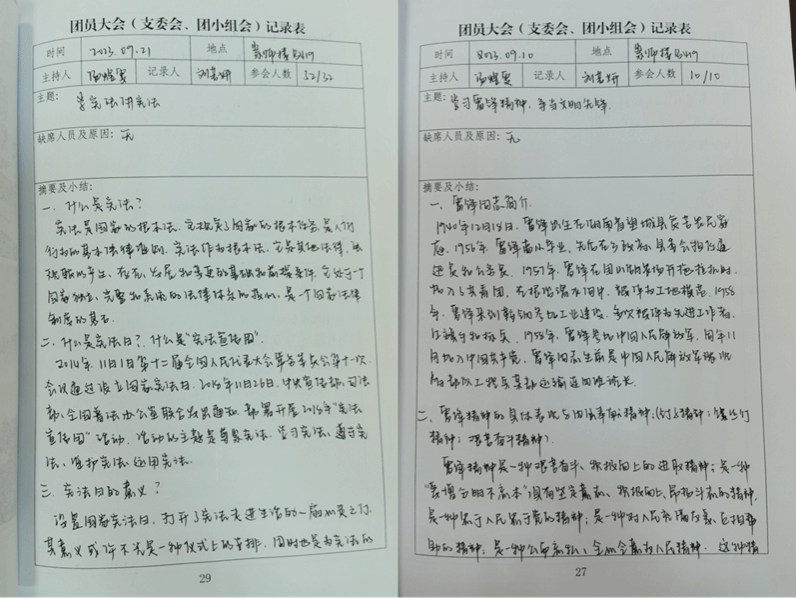 团员大会（支委会、团小组会）记录表
时间 2023.09.21 地点
主持人 记录人 参会人数 32/32
主题：
学宪法讲宪法
缺席人员及原因：无
摘要及小结：
一、什么是宪法？
宪法是国家的根本法，它规定了国家的根本任务，是人们
行为的基本法律准则，宪法作为根本法，它是其他法律、法
国家独立、完整和系统的法律体系的核心，是一个国家法律
制度的基石。
二、什么是宪法日？什么是“宪法宣传周”
2014年11月1日第十二届全国人民代表大会常务委员会第十一次
会议通过设立国家宪法日。2018年11月26日，中央宣传部、司法
部、全国普法办公室联合发出通知，部署开展2018年“宪法
宣传周”活动，活动的主题是尊崇宪法、学习宪法、遵守宪
法、维护宪法、运用宪法。
三、宪法日的意义？
设置国家宪法日，打开了宪法走进生活的一扇
其意义或许不光是一种仪式上的安排，同时也是为宪法的
29
团员大会（支委会、团小组会）记录表
时间 2023.09.10 地点
主持人 记录人 参会人数 10/10
主题：
学习雷锋精神，争当文明先锋
缺席人员及原因：无
摘要及小结：
一、雷锋同志简介
1940年12月18日，雷锋出生在湖南省望城县贫苦农民家
庭。1956年，雷锋高小毕业，先后在乡政府、县委会担任通
进员和公务员。1957年，雷锋在团山湖农场开拖拉机时，
加入了共青团，在根治沩水河中，被评为工地模范。1958
年，雷锋来到鞍钢参加工业建设，多次被评为先进工作者、
红旗手和标兵。雷锋参加中国人民解放军，同年11
月加入中国共产党。雷锋同志生前是中国人民解放军沈阳
部队工程兵某部运输连四班班长。
二、雷锋精神的具体表现
精神；艰苦奋斗精神）
雷锋精神是一种艰苦奋斗、积极向上的进取精神；是一种
是一种忠于人民忠于党的精神；是一种对人民
助的精神；是一种公而忘私，全心全意为人民精神。这种精
27